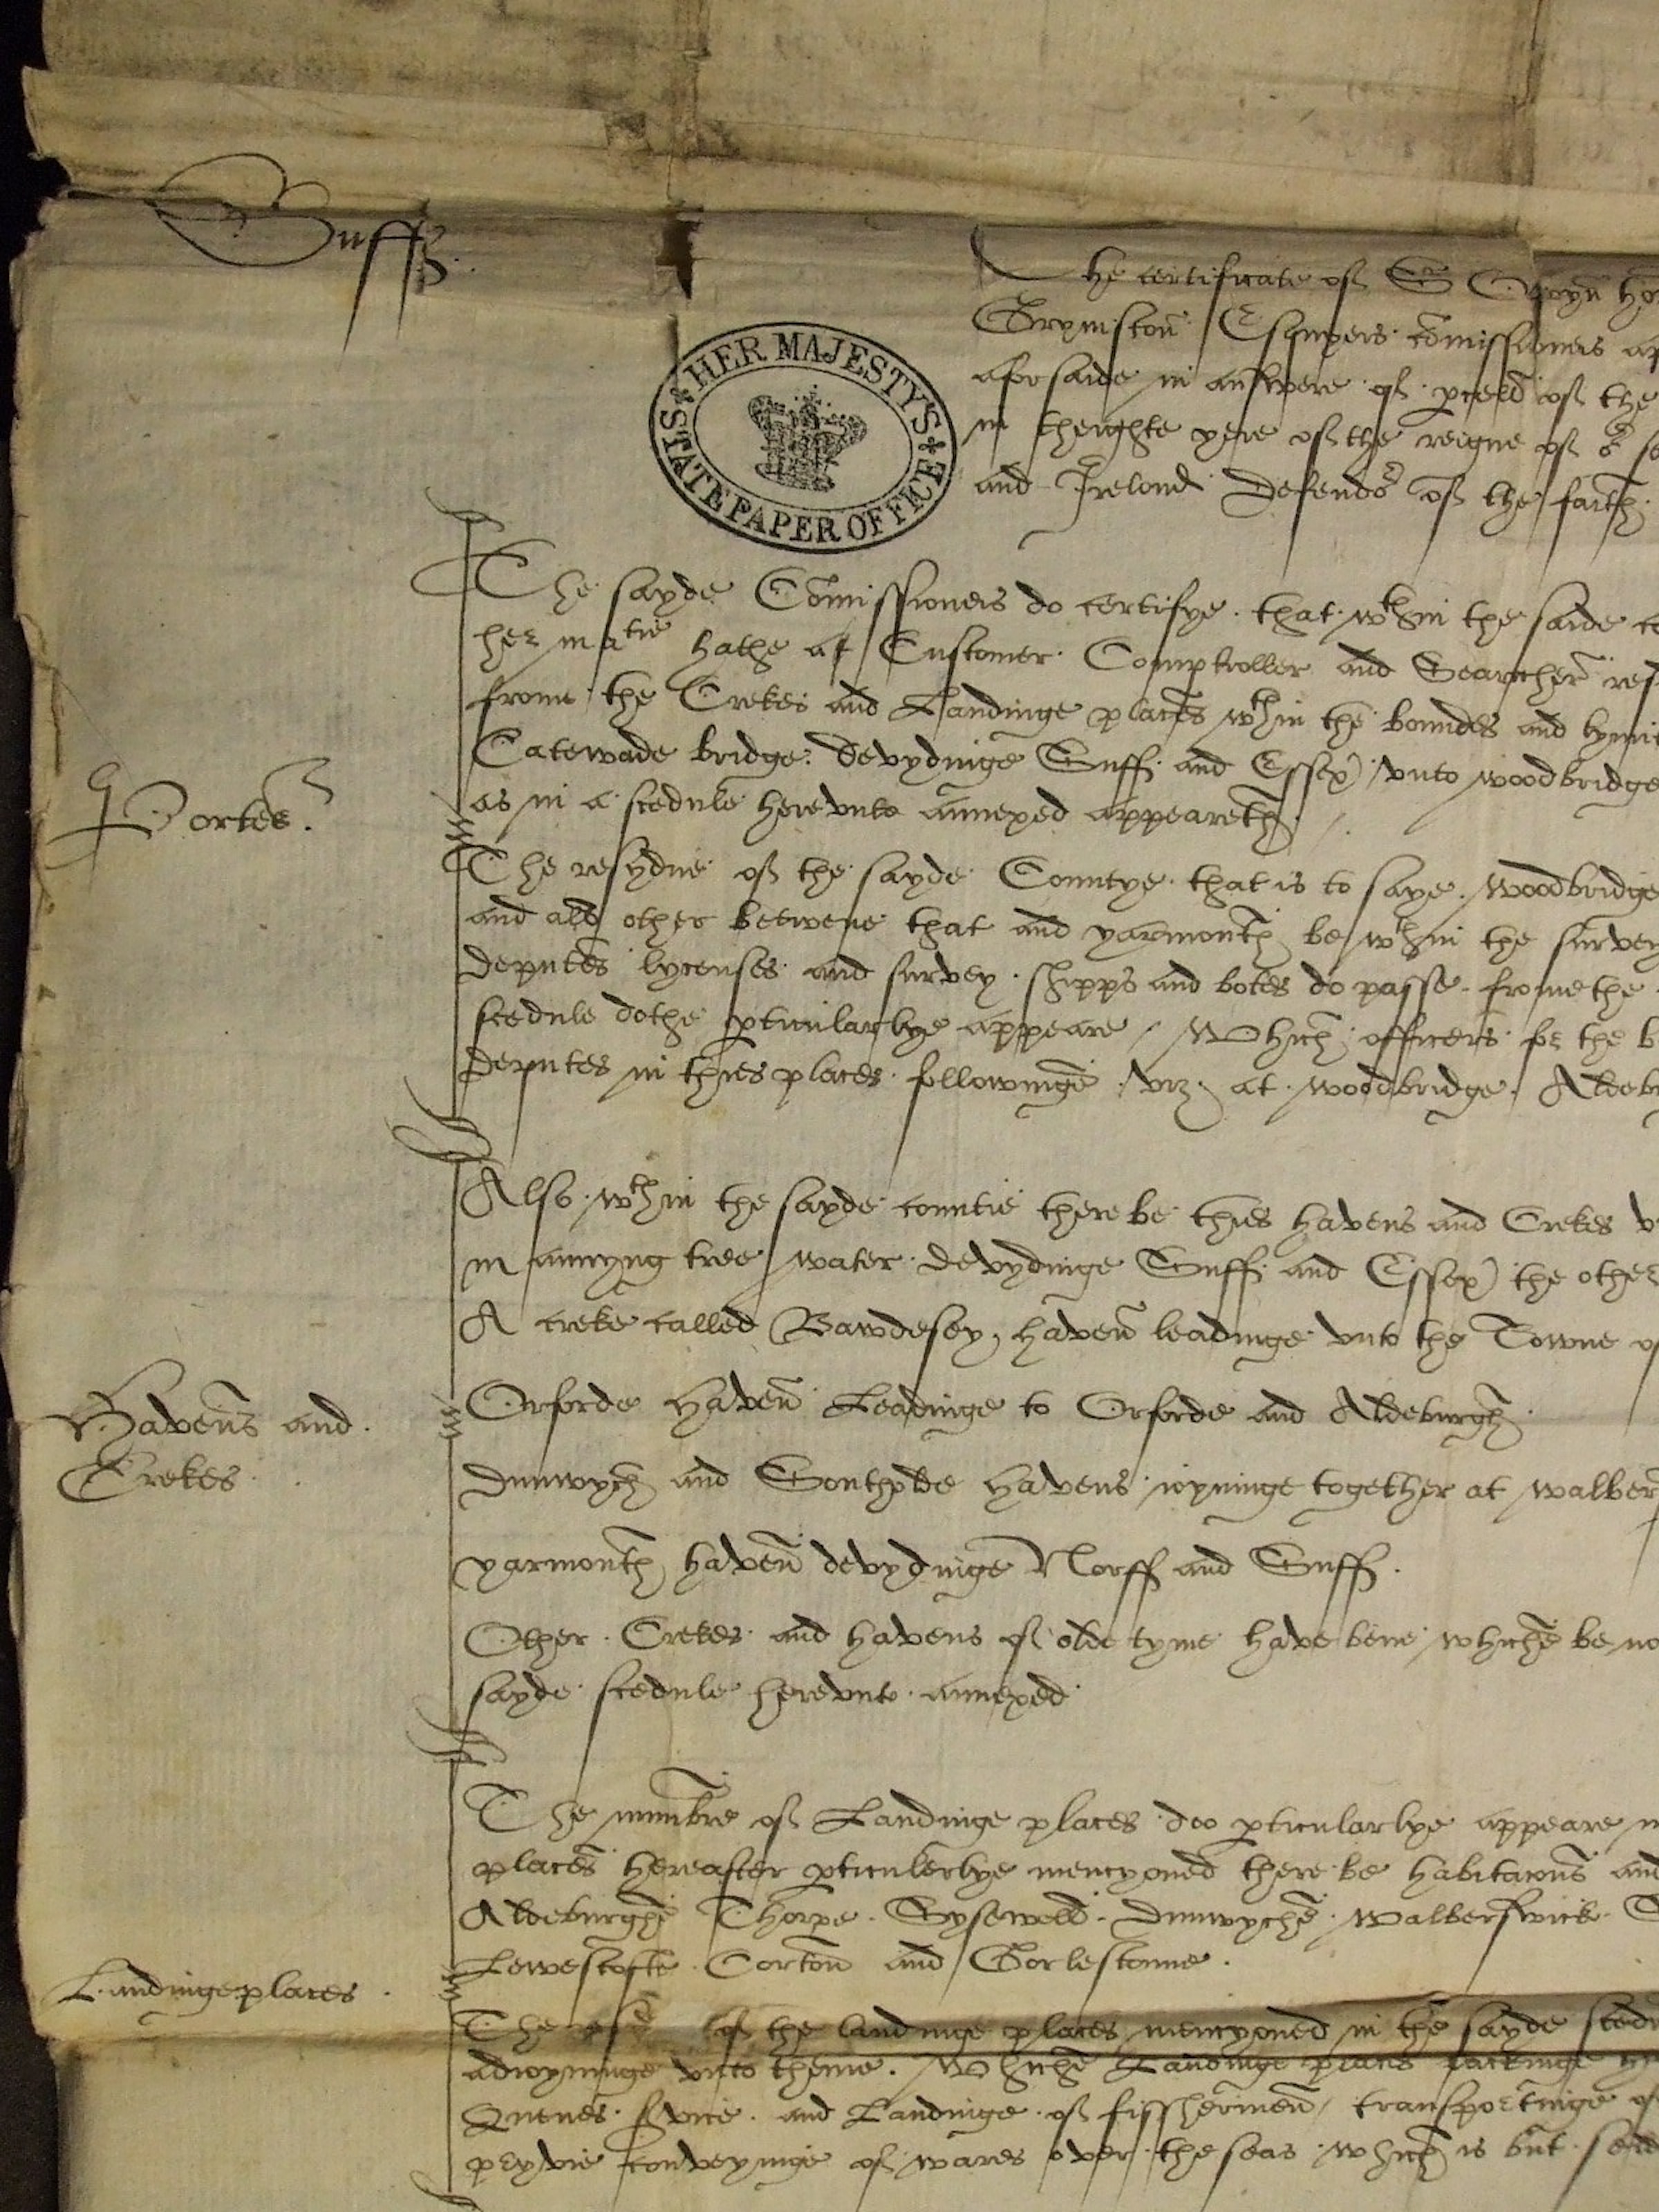 Suff.
The certificate of Sr Owyn ho
Grymston Esquyers comissioners ap
aforsaide in answere of pcell of the
in theighte yere of the reigne of or so
and Irelond Defendor of the faith.
HER MAJESTY'S STATE PAPER OFFICE
The sayde Comissioners do certifye that wthin the saide co
her matie hathe a Customer Comptroller and Searcher res
from the Crekes and Landinge places wthin the boundes and lymi
Catewade bridge devydinge Suff and Essex vnto woodbridge
Portes.
as in a scedule herevnto annexed appeareth.
The resydue of the sayde Countye that is to saye woodbridge
and all other betwene that and yarmouth be wthin the survey
deputes lycenses and survey shipps and botes do passe frome the
scedule dothe pticularlye appeare / Which officers be the b
deputes in thies places followinge viz at woodbridge Aldeb
Also wthin the sayde countie there be thies havens and Crekes v
mannyng tree water devydinge Suff and Essex the other
A creke called Bawdesey haven leadinge vnto the Towne of
Orforde haven Leadinge to Orforde and Aldeburgh.
Havens and
Crekes
Dunwych and Southolde havens ioyninge together at walber
yarmouth haven devydinge Norff and Suff.
Other Crekes and havens of olde tyme have bene whiche be no
sayde scedule herevnto annexed
The numbre of Landinge places doo pticularlye appeare in
places hereafter pticulerlye mencyoned there be habitacons and
Aldeburghe Thorpe Sysewell Dunwyche Walberswick S
Lewestofte Corton and Gorlestonne.
Landinge places
The of the landinge places mencyoned in the sayde scedu
adioyninge vnto theme. Whiche Landinge places lackinge
Quenes svice and Landinge of fisshermen transportinge of
pryvie conveyinge of wares over the seas which is but seld